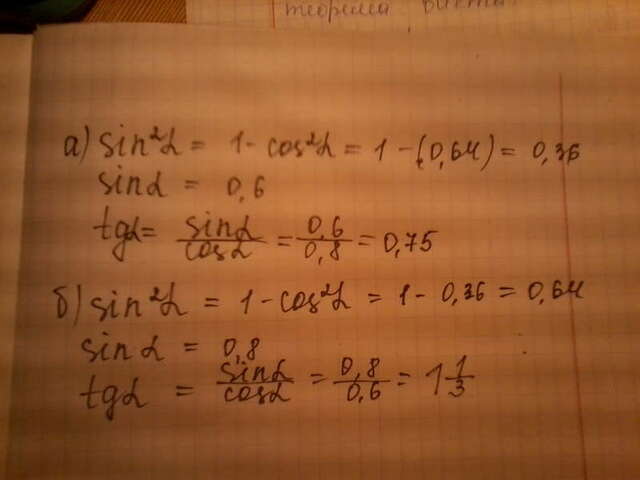 теорема Виета
а) sin²α = 1 - cos²α = 1 - (0,64) = 0,36
sinα = 0,6
tgα = sinα/cosα = 0,6/0,8 = 0,75
б) sin²α = 1 - cos²α = 1 - 0,36 = 0,64
sinα = 0,8
tgα = sinα/cosα = 0,8/0,6 = 1 1/3